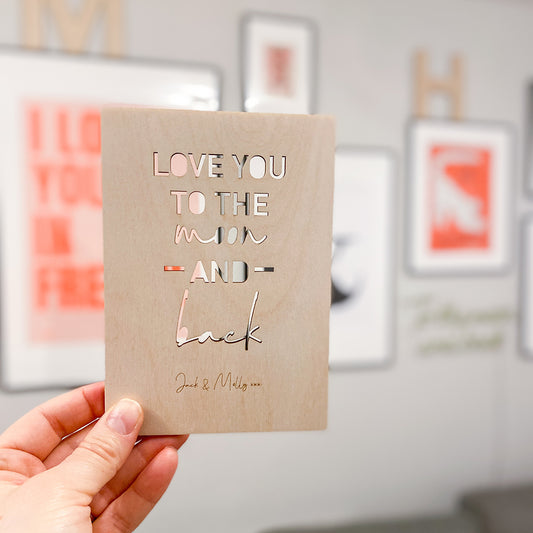 M
H
I LO
YOU
IN
FRE
LOVE YOU
TO THE
moon
- AND -
back
Jack & Molly xxx